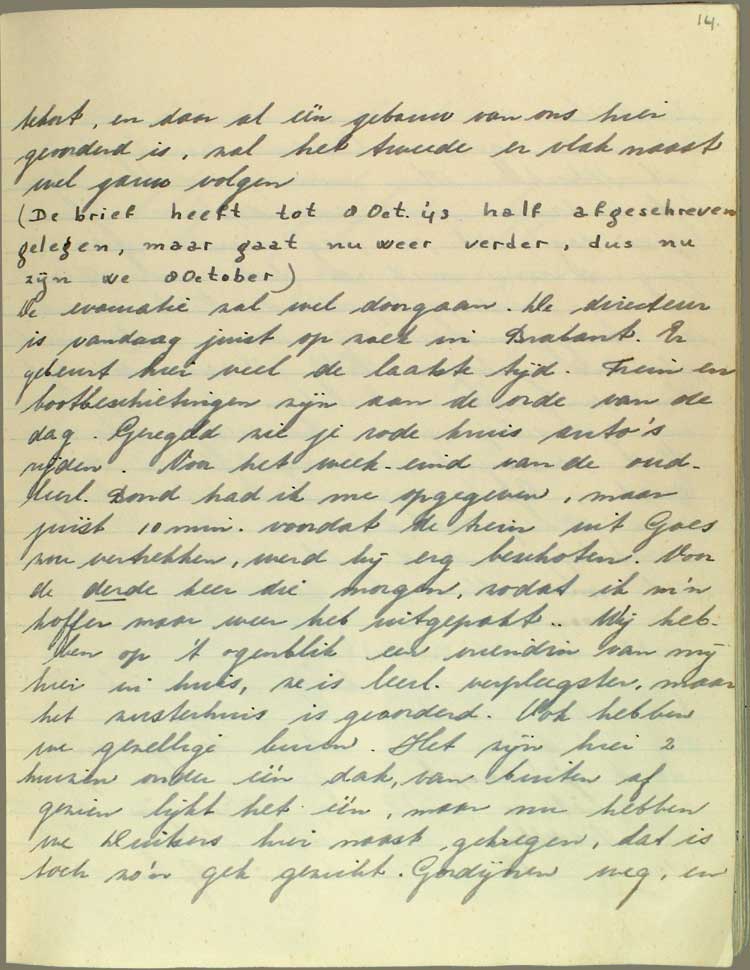 14.
tekort, en daar al één gebouw van ons hier
gevorderd is, zal het tweede er vlak naast
wel gauw volgen
(De brief heeft tot 8 Oct. '43 half afgeschreven
gelegen, maar gaat nu weer verder, dus nu
zijn we 8 October)
De evacuatie zal wel doorgaan. De directeur
is vandaag juist op zoek in Brabant. Er
gebeurt hier veel de laatste tijd. Trein en
bootbeschietingen zijn aan de orde van de
dag. Geregeld zie je rode kruis auto's
rijden. Voor het week-eind van de oud-
leerl. Bond had ik me opgegeven, maar
juist 10 min. voordat de trein uit Goes
zou vertrekken, werd hij erg beschoten. Voor
de derde keer die morgen, zodat ik m'n
koffer maar weer heb uitgepakt.. Wij heb-
ben op 't ogenblik een vriendin van mij
hier in huis, ze is leerl. verpleegster, maar
het zusterhuis is gevorderd. Ook hebben
we gezellige buren. Het zijn hier 2
huizen onder één dak, van buiten af
gezien lijkt het één, maar nu hebben
we Duitsers hier naast gekregen, dat is
toch zo'n gek gezicht. Gordijnen weg, en